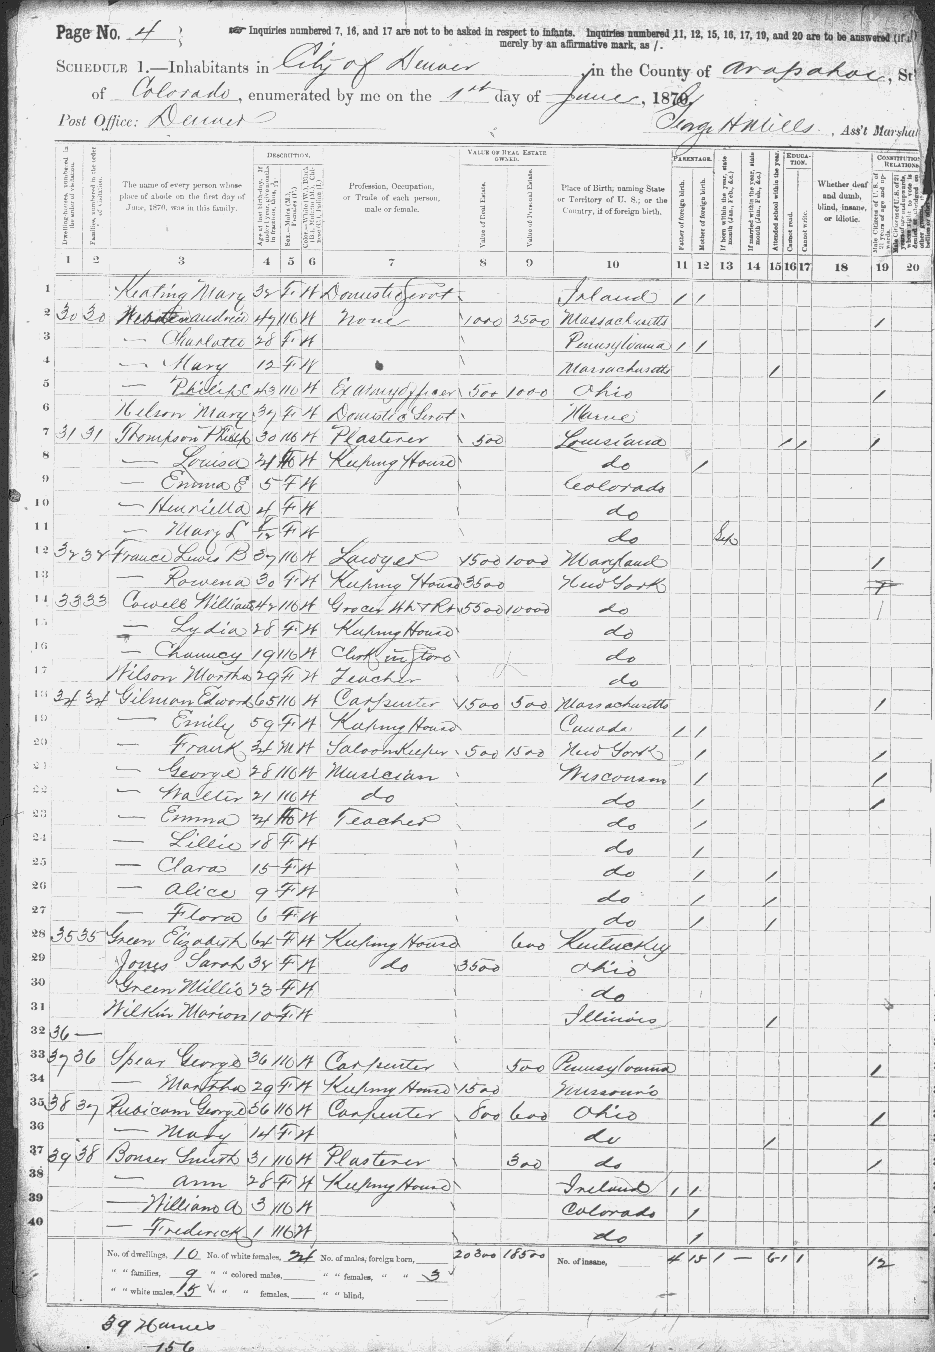 Page No. 4
☞ Inquiries numbered 7, 16, and 17 are not to be asked in respect to infants. Inquiries numbered 11, 12, 15, 16, 17, 19, and 20 are to be answered (if
merely by an affirmative mark, as /.
SCHEDULE 1.—Inhabitants in City of Denver, in the County of Arapahoe, St
of Colorado, enumerated by me on the 1st day of June, 1870.
Post Office: Denver George H Mills, Ass't Marshal
DESCRIPTION. VALUE OF REAL ESTATE OWNED. PARENTAGE. EDUCATION. CONSTITUTIONAL RELATIONS.
Dwelling-houses, numbered in the order of visitation.
Families, numbered in the order of visitation.
The name of every person whose place of abode on the first day of June, 1870, was in this family.
Profession, Occupation, or Trade of each person, male or female.
Value of Real Estate.
Value of Personal Estate.
Place of Birth, naming State or Territory of U. S.; or the Country, if of foreign birth.
Father of foreign birth.
Mother of foreign birth.
If born within the year, state month (Jan., Feb., &c.)
If married within the year, state month (Jan., Feb., &c.)
Attended school within the year.
Cannot read.
Cannot write.
Whether deaf and dumb, blind, insane, or idiotic.
1 2 3 4 5 6 7 8 9 10 11 12 13 14 15 16 17 18 19 20
1 Keating Mary 32 F W Domestic Servt Ireland / /
2 30 30 47 M W None 1000 2500 Massachusetts /
3 — Charlotte 28 F W Pennsylvania / /
4 — Mary 12 F W Massachusetts /
5 — Philip E 43 M W Ex Army Officer 500 1000 Ohio /
6 Nelson Mary 37 F W Domestic Servt Maine
7 31 31 Thompson Philip 30 M W Plasterer 500 Louisiana / / /
8 — Louisa 24 F W Keeping House do /
9 — Emma E 5 F W Colorado
10 — Henrietta 4 F W do
11 — Mary L 8/12 F W do Sep
12 32 32 France Lewis B 37 M W Lawyer 1500 1000 Maryland /
13 — Rowena 30 F W Keeping House 3500 New York
14 33 33 Cowell William 42 M W Grocer 5500 10000 do /
15 — Lydia 28 F W Keeping House do
16 — Chauncy 19 M W Clerk in Store do
17 Wilson Martha 29 F W Teacher do
18 34 34 Gilman Edward 65 M W Carpenter 1500 500 Massachusetts /
19 — Emily 59 F W Keeping House Canada / /
20 — Frank 34 M W Saloon Keeper 500 1500 New York / /
21 — George 28 M W Musician Wisconsin / /
22 — Walter 21 M W do do / /
23 — Emma 24 F W Teacher do /
24 — Lillie 18 F W do /
25 — Clara 15 F W do / /
26 — Alice 9 F W do / /
27 — Flora 6 F W do / /
28 35 35 Green Elizabeth 64 F W Keeping House 600 Kentucky
29 Jones Sarah 32 F W do 3500 Ohio
30 Green Millie 23 F W do
31 Wilkin Marion 10 F W Illinois /
32 36 —
33 37 36 Spear George 36 M W Carpenter 500 Pennsylvania /
34 — Martha 29 F W Keeping House 1500 Missouri
35 38 37 Rubicam George 56 M W Carpenter 800 600 Ohio /
36 — Mary 14 F W do /
37 39 38 Bonser Smith 31 M W Plasterer 300 do /
38 — Ann 28 F W Keeping House Ireland / /
39 — William A 3 M W Colorado /
40 — Frederick 1 M W do /
No. of dwellings, 10 No. of white females, 24 No. of males, foreign born, 20300 18500 No. of insane, 4 15 1 — 6 1 1 12
" " families, 9 " " colored males, " " females, " " 3
" " white males, 15 " " " females, " " blind,
39 Names
156